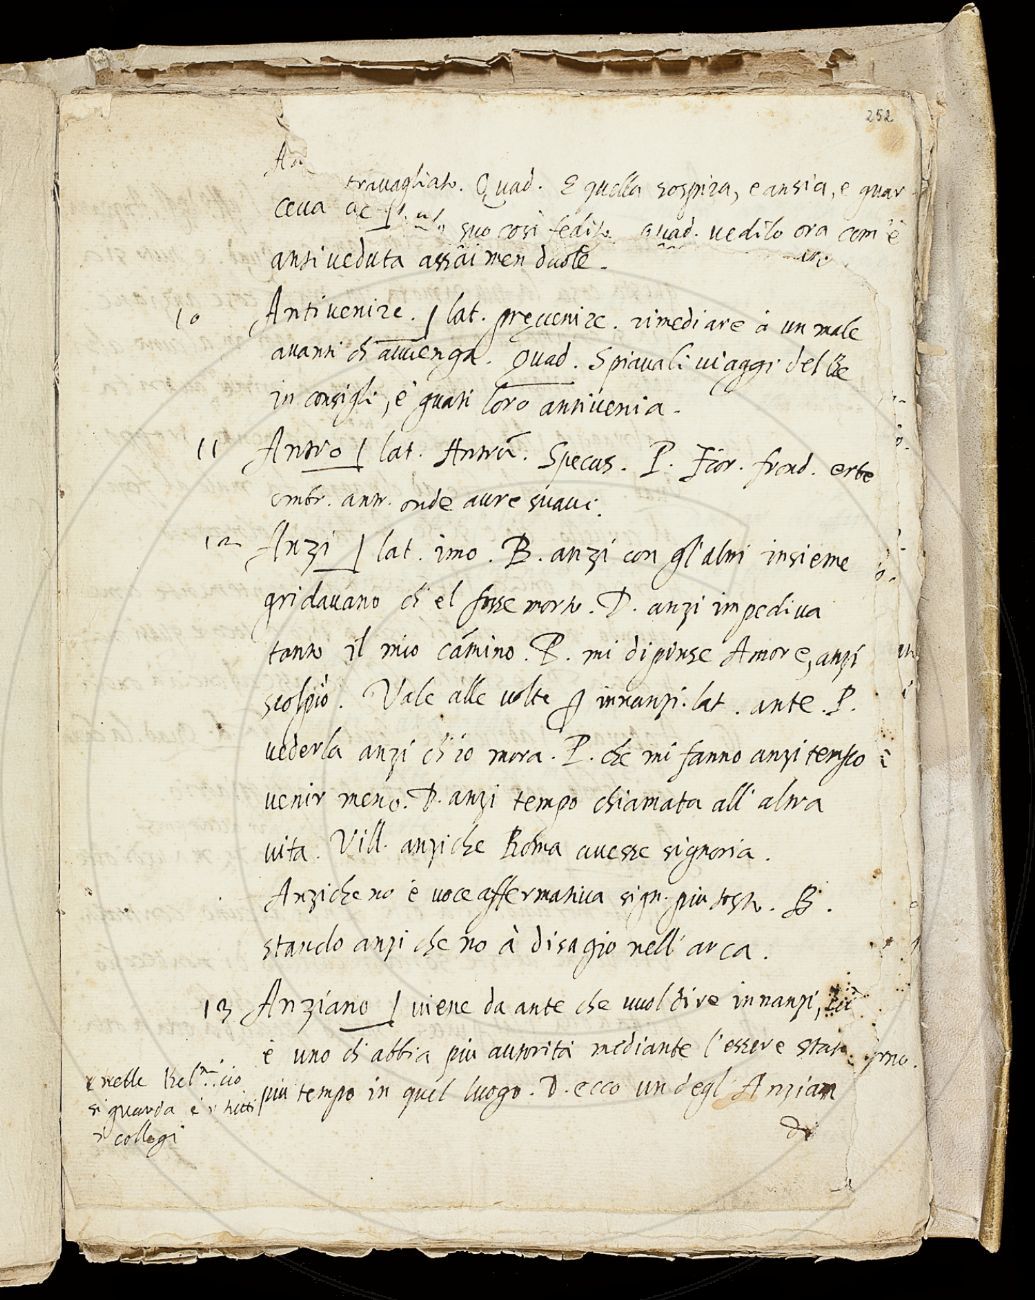 252
travagliato. Quad. E quella sospira, e ansia, e guar
ceva
suo così fedito Quad. vedilo ora com'è
antiveduta assai men duole.
10 Antivenire. / lat. prevenire. rimediare à un male
avanti ch'avvenga. Quad. Spiavali viaggi del Re
in consigli, e quasi loro antivenia.
11 Antro / lat. Antrũ. Specus. P. Fior. frond. erbe
ombr. antr. onde aure suavi.
12 Anzi / lat. imo. B. anzi con gl'altri insieme
gridavano ch'el fosse morto. D. anzi impediva
tanto il mio cámino. P. mi dipinse Amore, anzi
scolpio. Vale alle volte ꝑ innanzi. lat. ante. P.
vederla anzi ch'io mora. P. che mi fanno anzi tempo
venir meno. D. anzi tempo chiamata all'altra
vita. Vill. anzi che Roma avesse signoria.
Anzicheno è voce affermativa sign. piu tosto. B.
stando anzi che no à disagio nell'arca.
13 Anziano / viene da ante che vuol dire innanzi,
è uno ch'abbia piu autorità mediante l'essere stato
piu tempo in quel luogo. D. ecco un degl'Anzian
nelle cio
si guarda
collegi